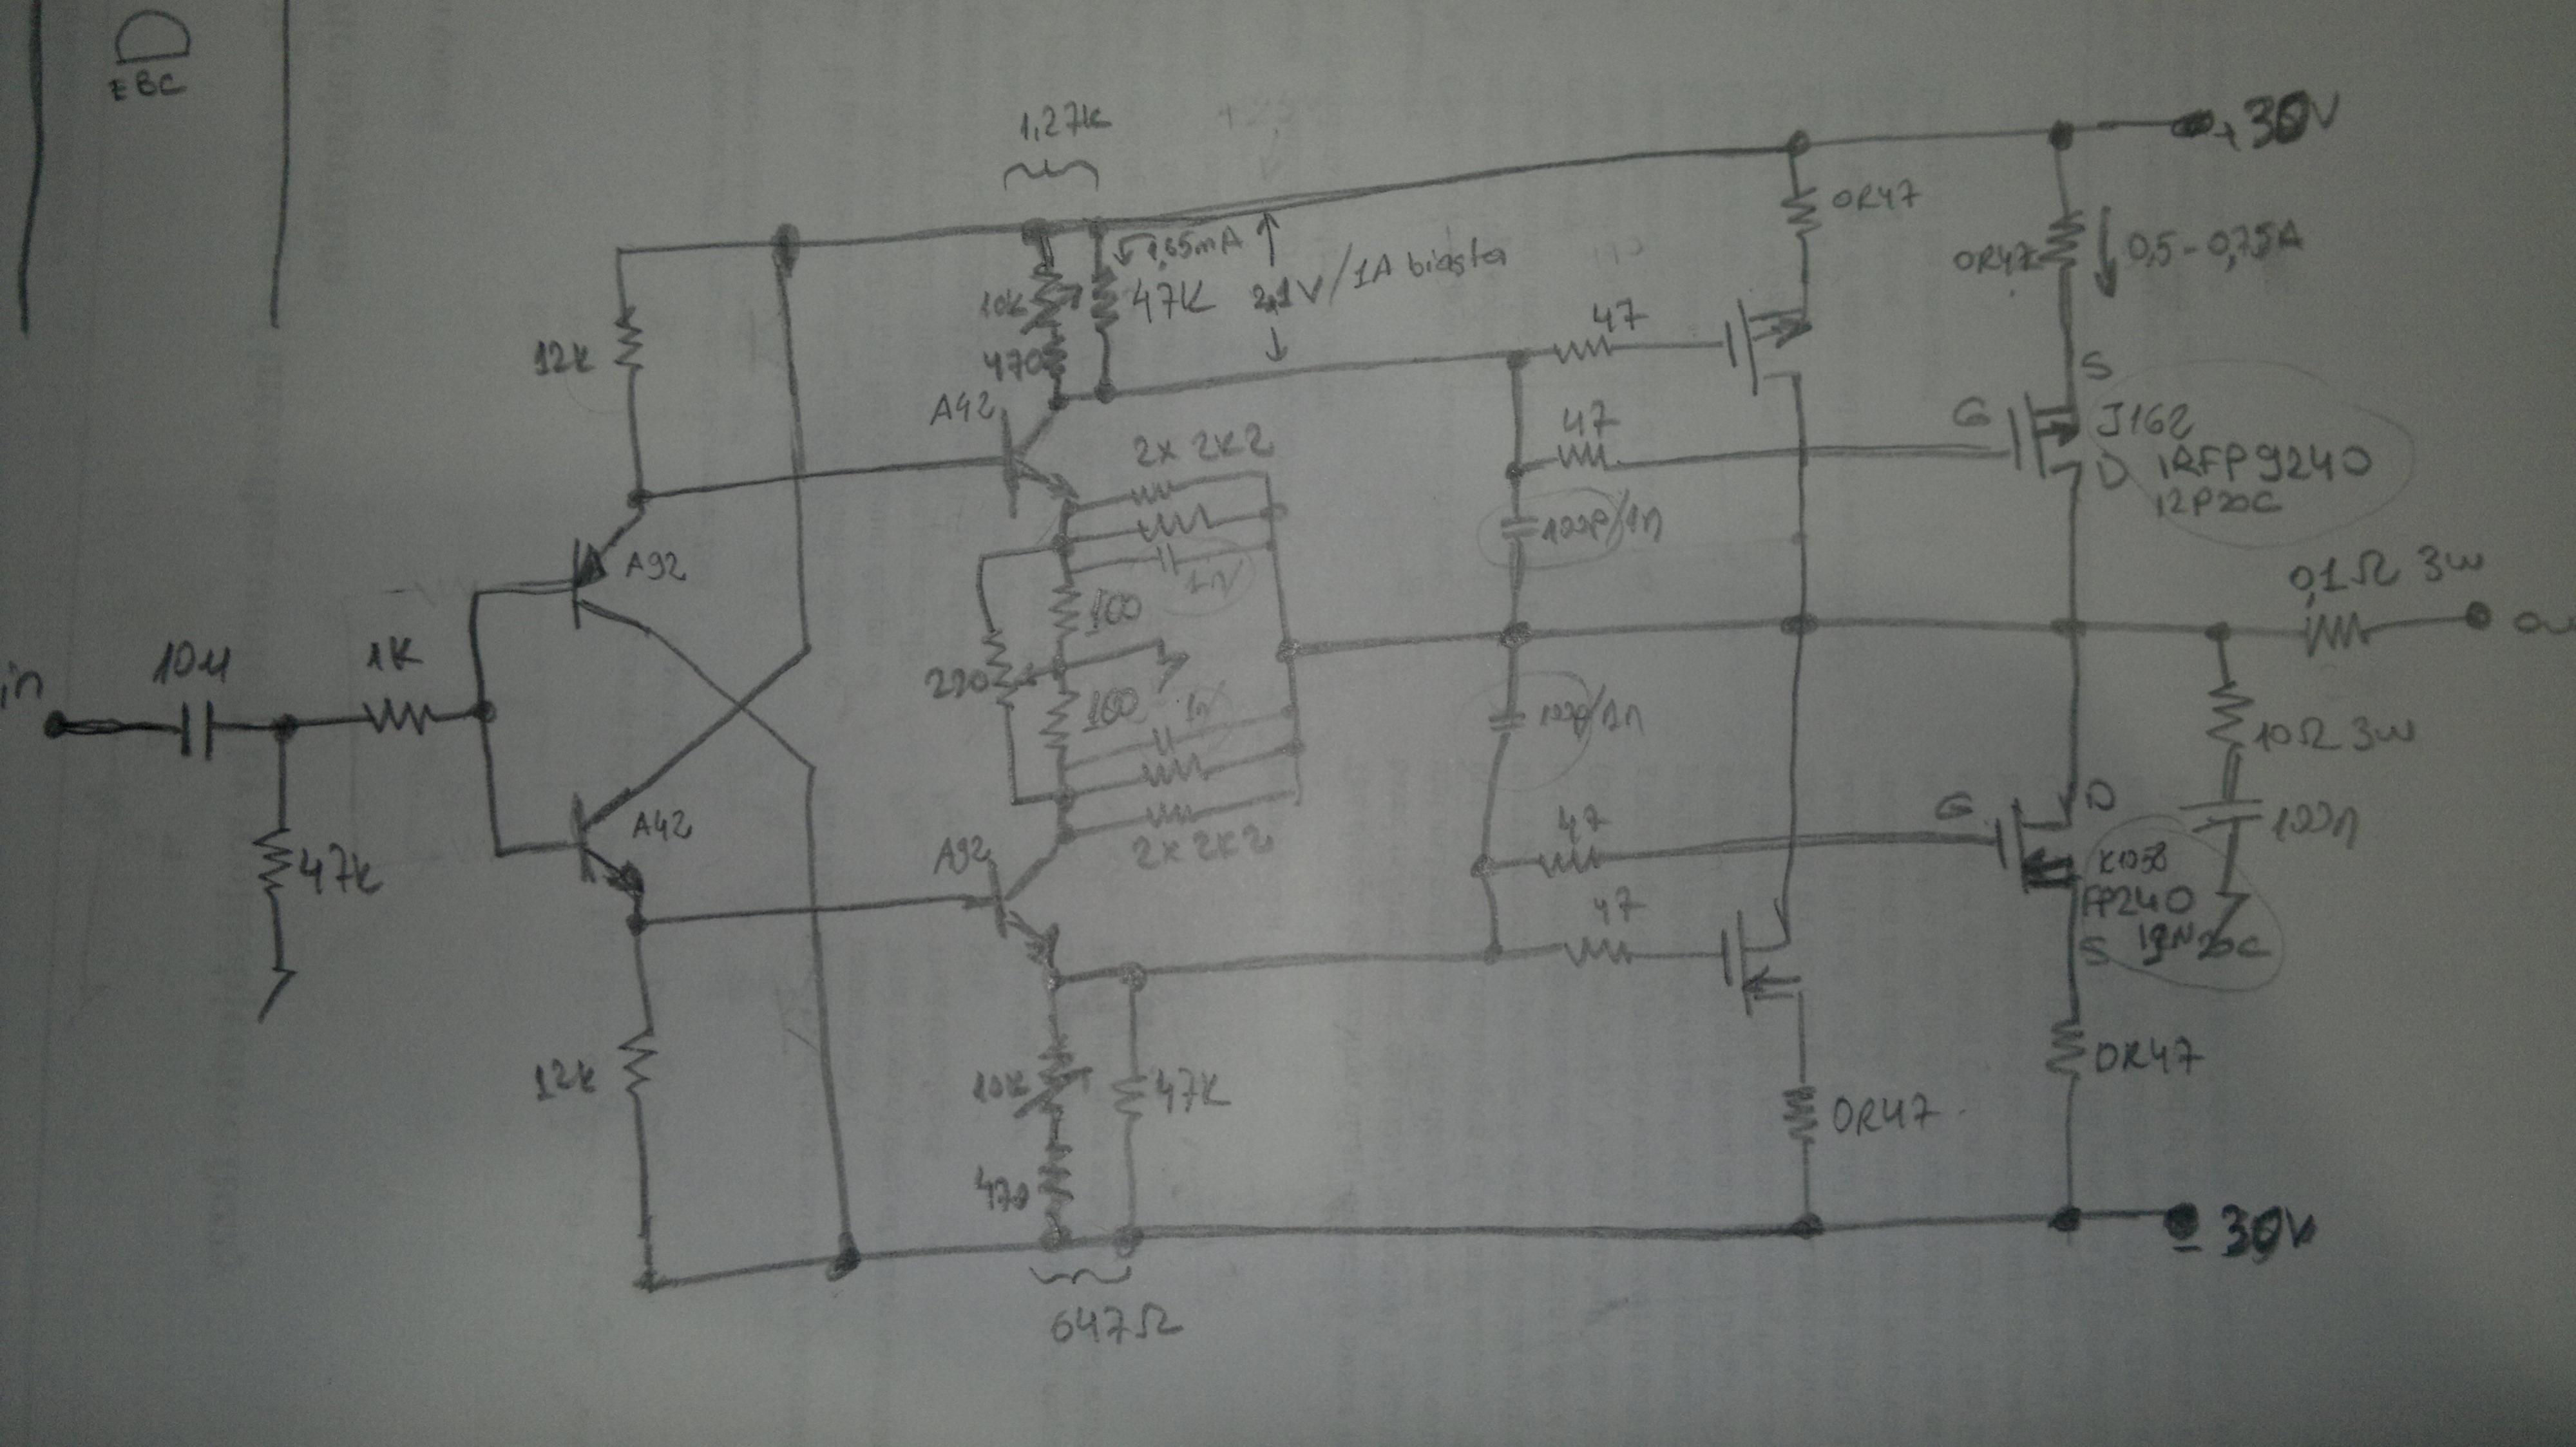 EBC
1,27K
+30V
0R47
1,65mA
0R47
0,5-0,75A
10K
47K
2,1V/1A biasta
12K
470
47
S
A42
47
G
J162
2x 2K2
D
IRFP9240
12P20C
100p/1n
A92
1n
0,1Ω 3W
100
in
10u
1K
220
100
1n
100p/1n
10Ω 3W
A42
D
G
47
100n
A92
2x 2K2
K1058
47K
FP240
47
S
20C
12K
10K
47K
0R47
0R47
470
- 30V
647Ω